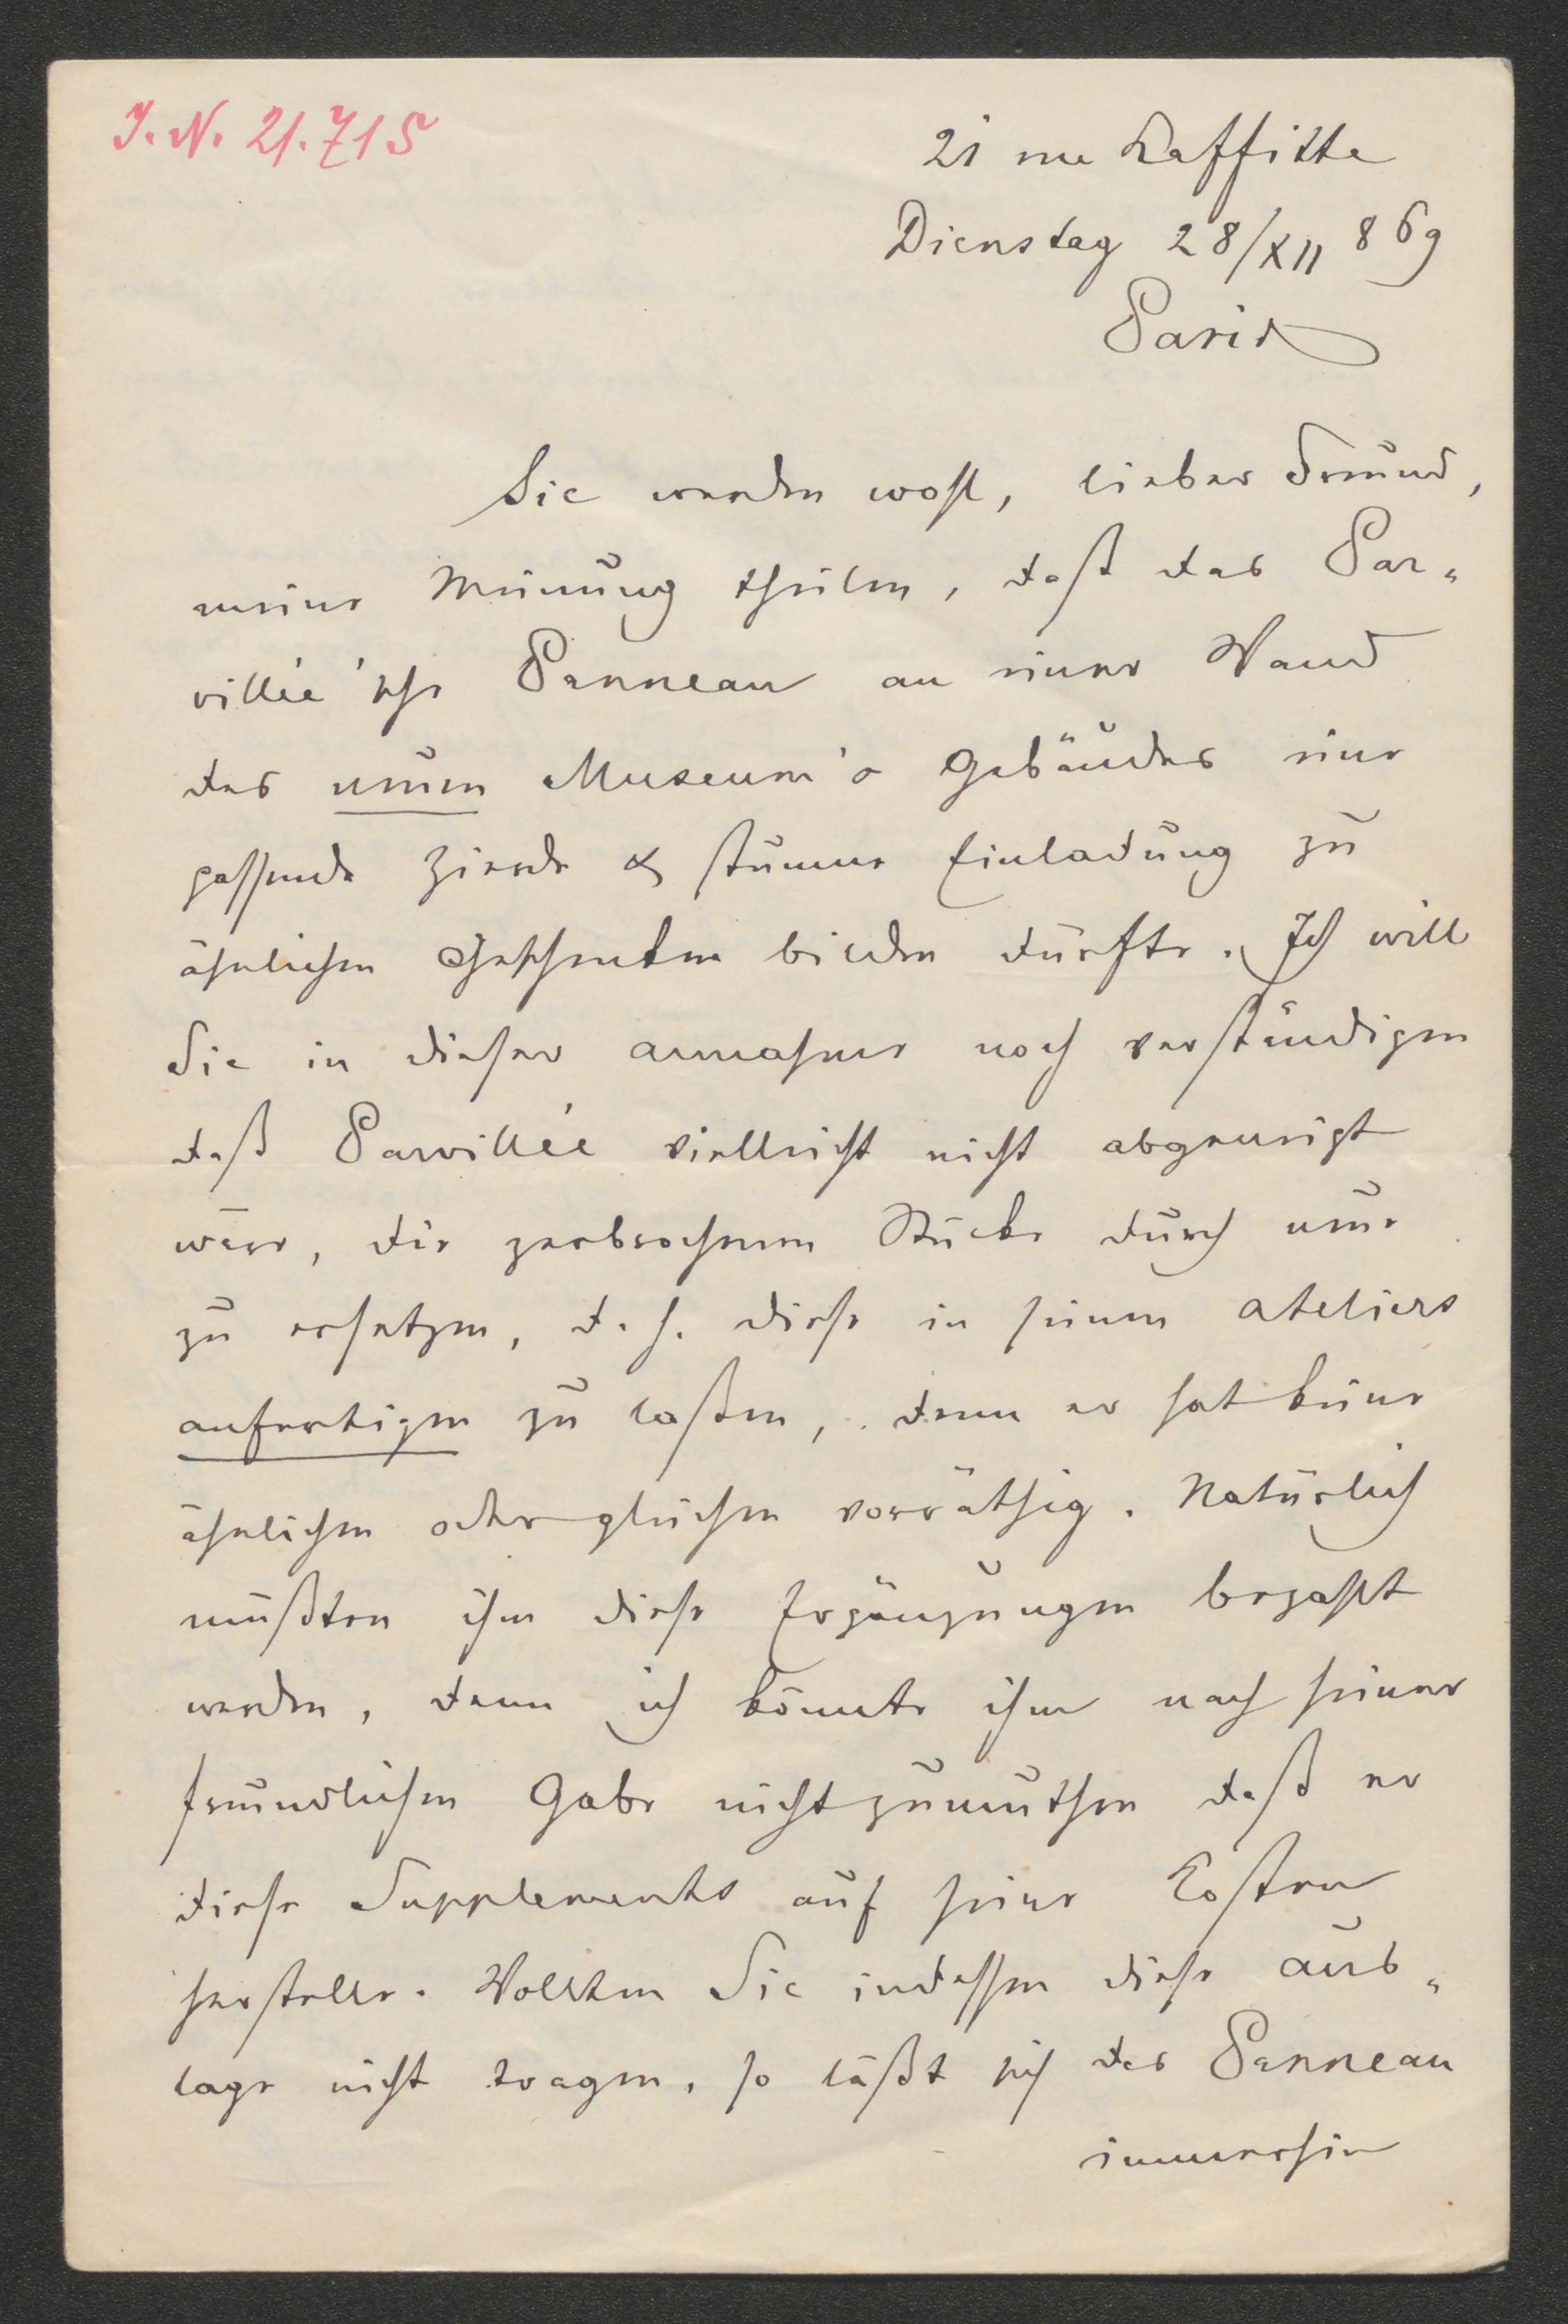 I. N. 21.715
21 rue Laffitte
Dienstag 28/XII 869
Paris
Sie werden wohl, lieber Freund,
meine Meinung theilen, daß das Par-
villée'sche Panneau an einer Wand
des neuen Museum's Gebäudes eine
passende Zierde & stumme Einladung zu
ähnlichen Geschenken bilden dürfte. Ich will
Sie in dieser Annahme noch verständigen
daß Parvillée vielleicht nicht abgeneigt
wäre, die zerbrochenen Stücke durch neue
zu ersetzen, d. h. diese in seinen Ateliers
anfertigen zu laßen, denn er hat keine
ähnlichen oder gleichen vorräthig. Natürlich
müßten ihm diese Ergänzungen bezahlt
werden, denn ich könnte ihm nach seiner
freundlichen Gabe nicht zumuthen daß er
diese Supplements auf seine Costen
herstelle. Wollten Sie indessen diese Aus-
lage nicht tragen, so läßt sich das Panneau
immerhin